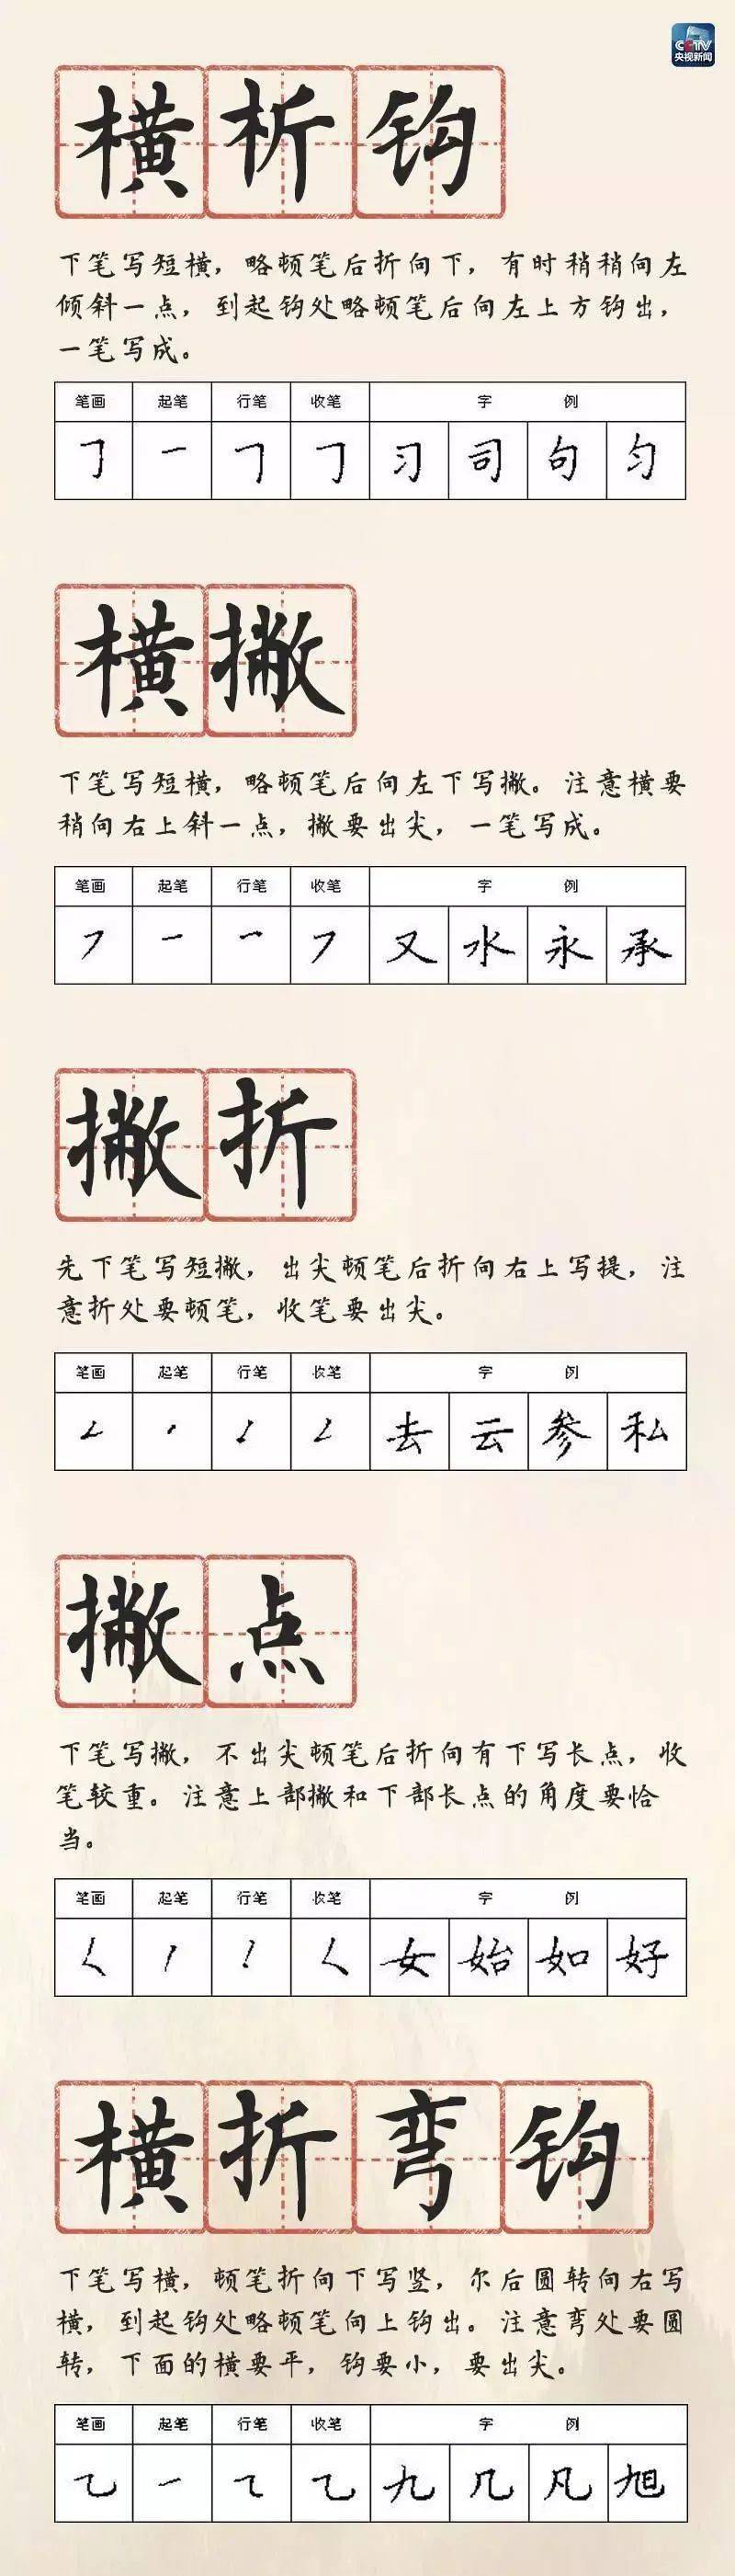 CCTV
央视新闻
横析钩
下笔写短横，略顿笔后折向下，有时稍稍向左
倾斜一点，到起钩处略顿笔后向左上方钩出，
一笔写成。
笔画 起笔 行笔 收笔 字 例
𠃌 一 𠃌 𠃌 习 司 句 匀
横撇
下笔写短横，略顿笔后向左下写撇。注意横要
稍向右上斜一点，撇要出尖，一笔写成。
笔画 起笔 行笔 收笔 字 例
㇇ 一 ㇇ 又 水 永 承
撇折
先下笔写短撇，出尖顿笔后折向右上写提，注
意折处要顿笔，收笔要出尖。
笔画 起笔 行笔 收笔 字 例
㇜ ㇜ 去 云 参 私
撇点
下笔写撇，不出尖顿笔后折向有下写长点，收
笔较重。注意上部撇和下部长点的角度要恰
当。
笔画 起笔 行笔 收笔 字 例
㇛ ㇛ 女 始 如 好
横折弯钩
下笔写横，顿笔折向下写竖，尔后圆转向右写
横，到起钩处略顿笔向上钩出。注意弯处要圆
转，下面的横要平，钩要小，要出尖。
笔画 起笔 行笔 收笔 字 例
㇈ 一 ㇈ 九 几 凡 旭